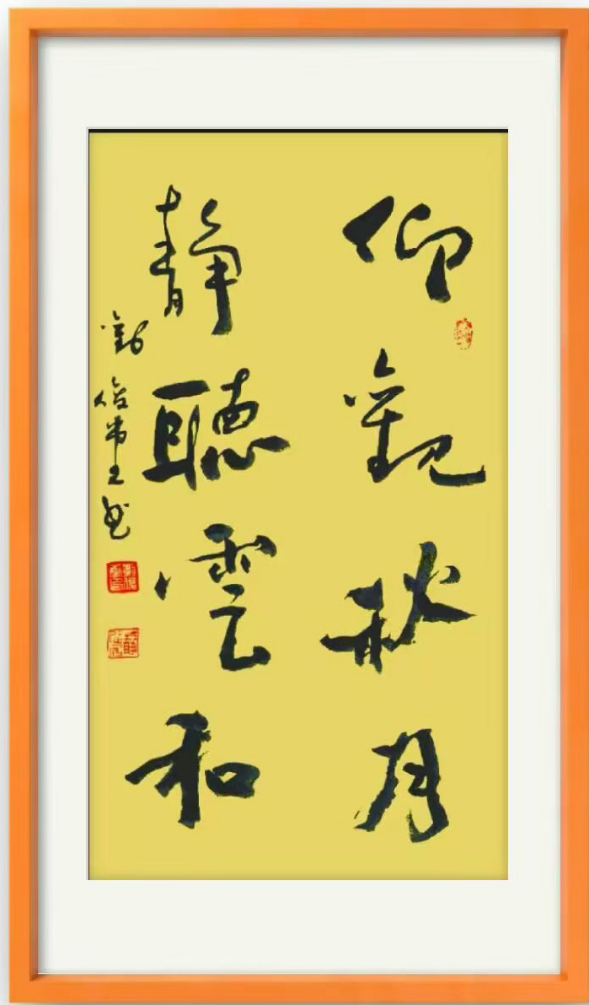 仰觀秋月
靜聽雲和